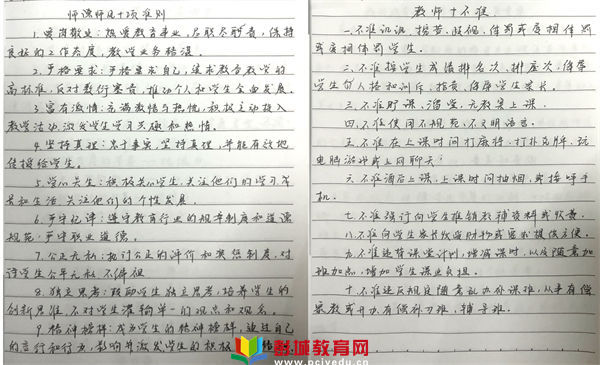 师德师风十项准则
1.爱岗敬业:热爱教育事业,尽职尽责,保持
良好的工作态度,教学业务精湛。
2.严格要求:严格要求自己,追求教书教学的
高标准,反对敷衍塞责,推动个人和学生全面发展。
3.富有激情:充满激情与热忱,积极主动投入
教学活动,激发学生学习兴趣和热情。
4.坚持真理:忠于事实,坚持真理,并能有效地
传授给学生。
5.学心关生:积极关心学生,关注他们的学习成
长和生活,关注他们的个性发展。
6.严守纪律:遵守教育行业的规章制度和道德
规范,严守职业道德。
7.公正无私:执行公正的评价和奖惩制度,对
待学生公平无私,不偏袒
8.独立思考:鼓励学生独立思考,培养学生的
创新思维,不对学生灌输单一的观点和观念。
9.精神榜样:成为学生的精神榜样,通过自己
的言行和行为,影响并激发学生的积极
教师十不准
一.不准讥讽、挖苦、歧视、体罚或变相体罚
或变相体罚学生。
二.不准按学生成绩排名次、排座次,侮辱
学生的人格和训斥、指责、侮辱学生家长。
三.不准旷课、溜堂、无教案上课。
四.不准使用不规范、不文明语言。
五.不准在上课时间打麻将、打扑克牌、玩
电脑游戏或上网聊天。
六.不准酒后上课,上课时间抽烟,或接呼手
机。
七.不准强订向学生推销教辅资料或饮素。
八.不准向学生家长收受财物或要求提供方便。
九.不准违背课堂计划,增减课时,以及随意加
班加点,增加学生课业负担。
十.不准违反规定随意乱办补课班,从事有偿
家教或开办有偿补习班、辅导班。
彭城教育网
www.pcivedu.com